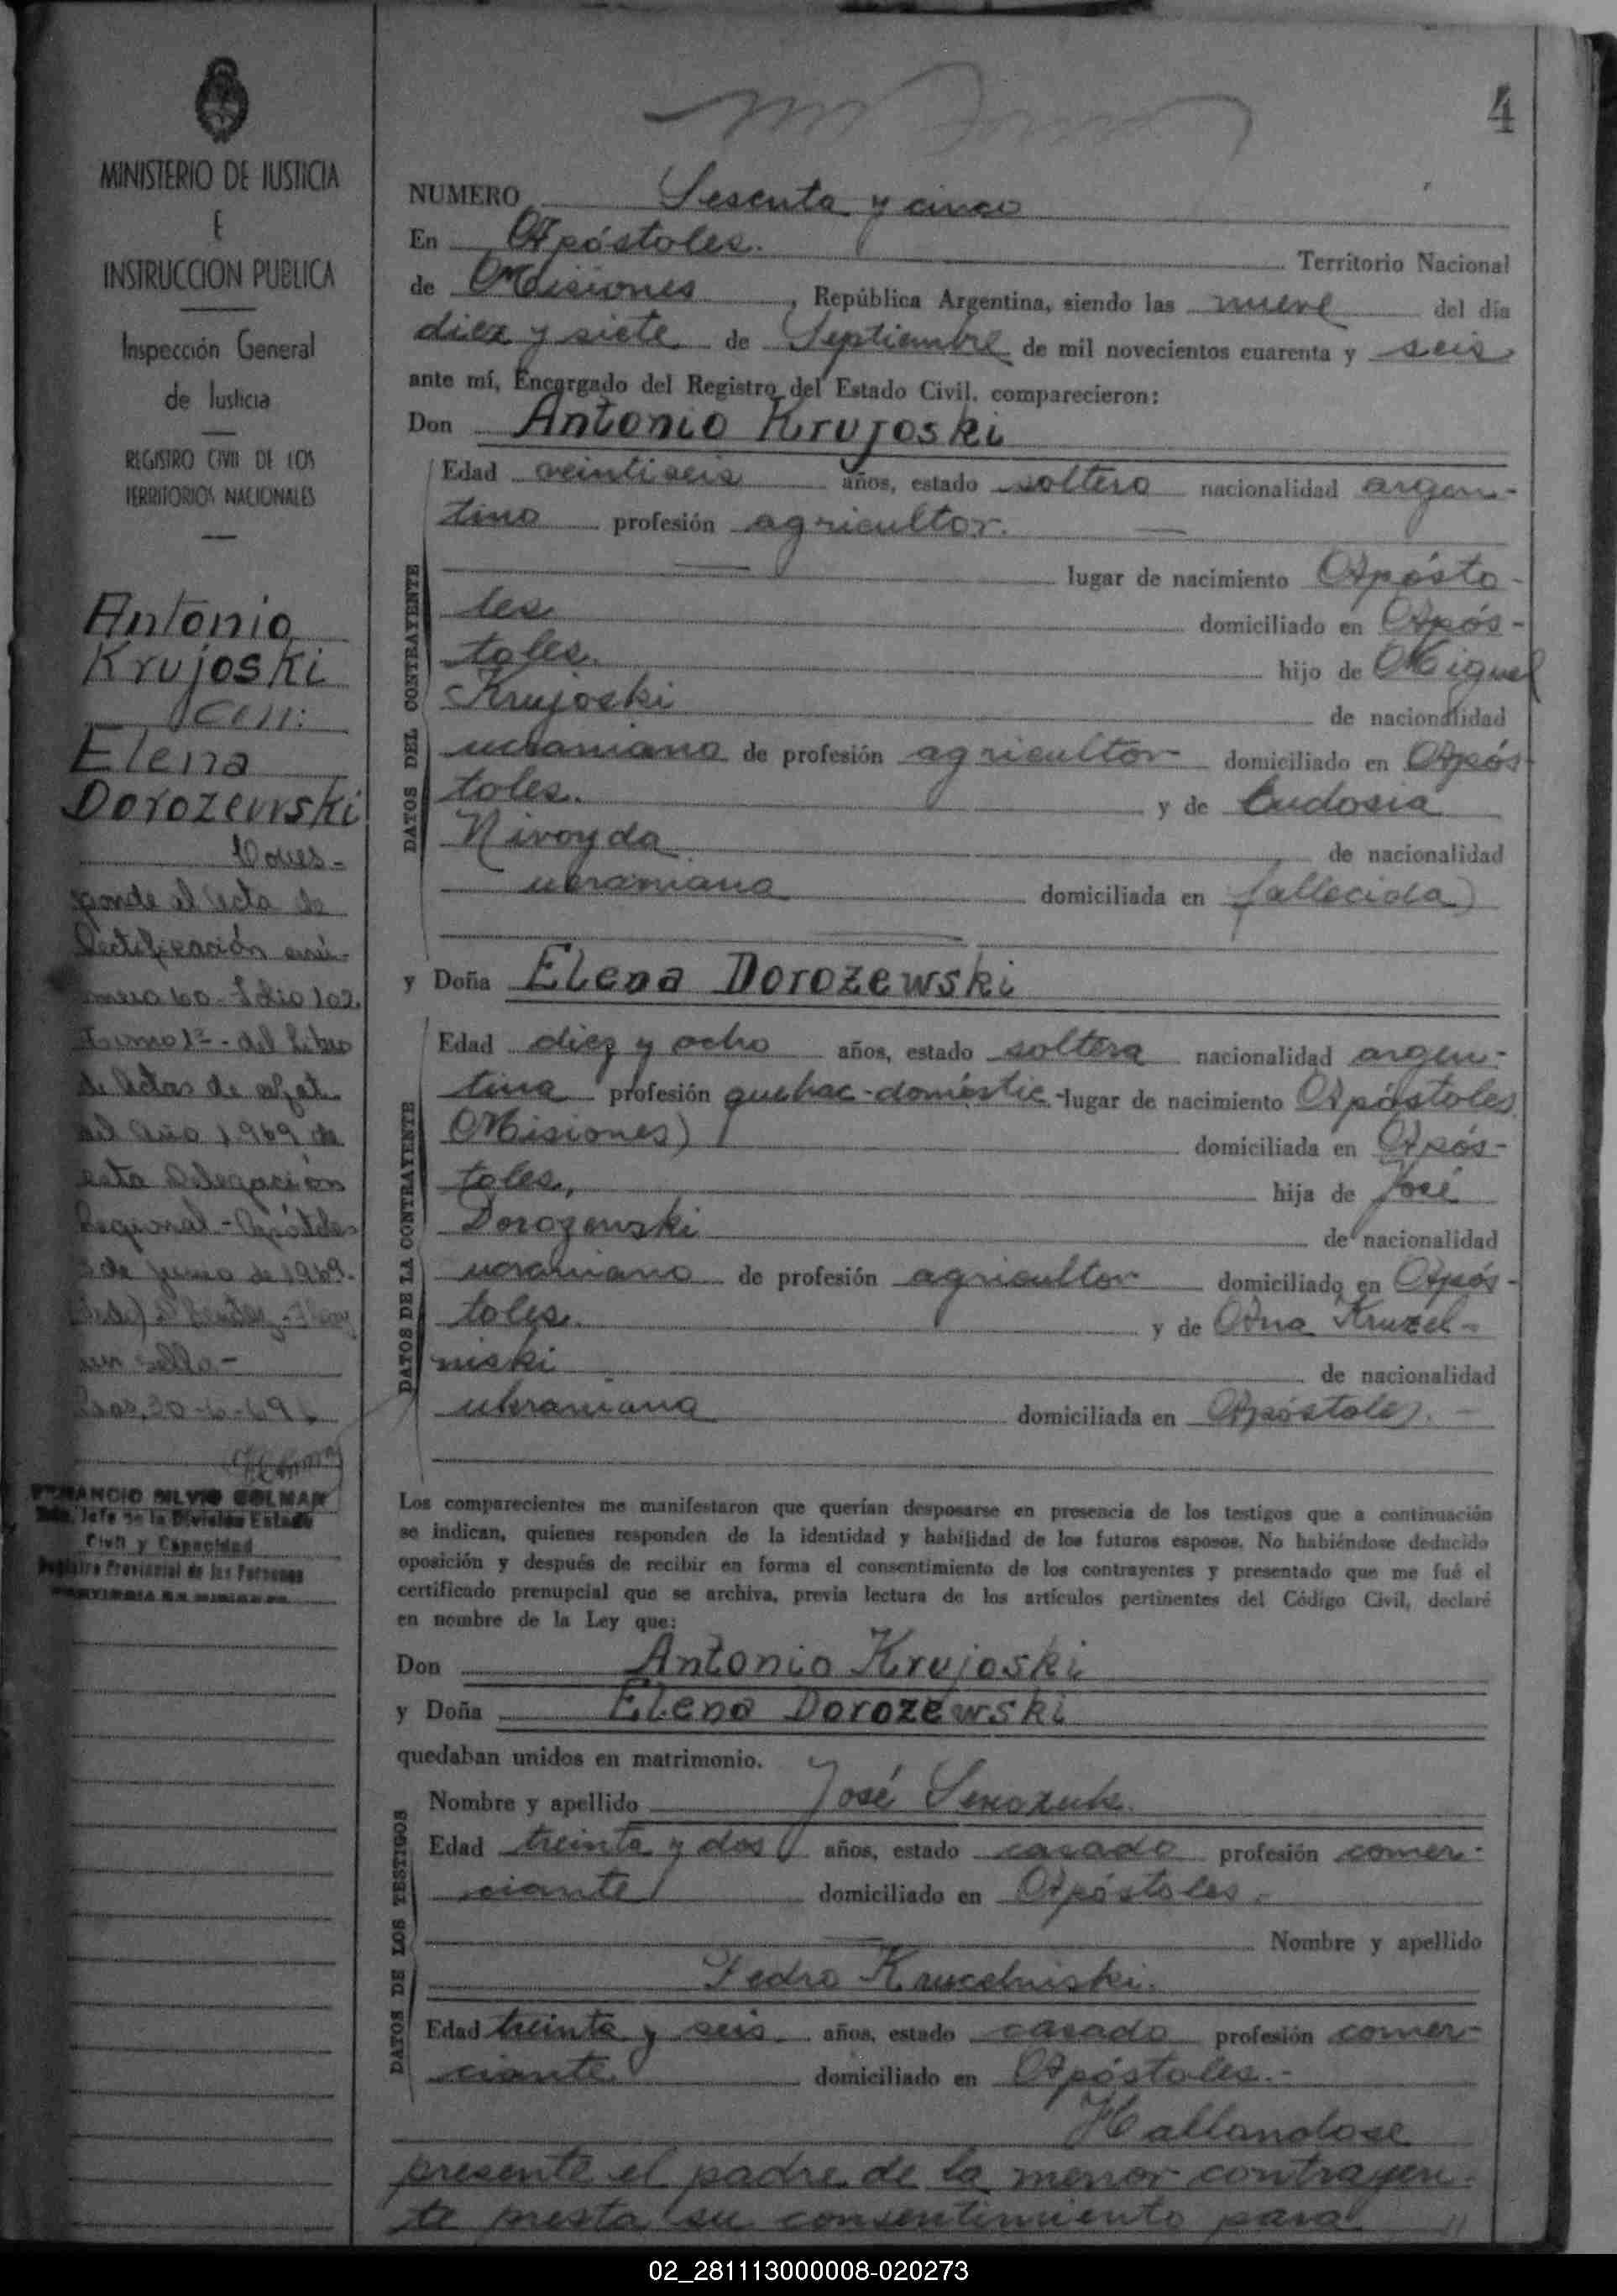 4
MINISTERIO DE JUSTICIA
E
INSTRUCCION PUBLICA
Inspección General
de Justicia
REGISTRO CIVIL DE LOS
TERRITORIOS NACIONALES
Antonio
Krujoski
con:
Elena
Dorozewski
ponde al acta de
Rectificación
Folio 102
Tomo 1º - del Libro
de Actas de
del año 1969 de
esta Delegación
Regional - Apóstoles
3 de Junio de 1969.
un sello -
30-6-69
SILVIO GOLMAN
Jefe de la División Estado
Civil y Capacidad
Registro Provincial de las Personas
PROVINCIA DE MISIONES
NUMERO Sesenta y cinco
En Apóstoles. Territorio Nacional
de Misiones, República Argentina, siendo las nueve del día
diez y siete de Septiembre de mil novecientos cuarenta y seis
ante mí, Encargado del Registro del Estado Civil, comparecieron:
Don Antonio Krujoski
DATOS DEL CONTRAYENTE
Edad veintiseis años, estado soltero nacionalidad argen-
tino profesión agricultor.
lugar de nacimiento Apósto-
les domiciliado en Após-
toles. hijo de Miguel
Krujoski de nacionalidad
ucraniano de profesión agricultor domiciliado en Após-
toles. y de Eudosia
Nivoyda de nacionalidad
ukraniana domiciliada en fallecida)
y Doña Elena Dorozewski
DATOS DE LA CONTRAYENTE
Edad diez y ocho años, estado soltera nacionalidad argen-
tina profesión quehac-doméstic- lugar de nacimiento Apóstoles
Misiones) domiciliada en Após-
toles, hija de José
Dorozewski de nacionalidad
ucraniano de profesión agricultor domiciliado en Após-
toles. y de Ana Kruzel-
niski de nacionalidad
ukraniana domiciliada en Apóstoles. -
Los comparecientes me manifestaron que querían desposarse en presencia de los testigos que a continuación
se indican, quienes responden de la identidad y habilidad de los futuros esposos. No habiéndose deducido
oposición y después de recibir en forma el consentimiento de los contrayentes y presentado que me fué el
certificado prenupcial que se archiva, previa lectura de los artículos pertinentes del Código Civil, declaré
en nombre de la Ley que:
Don Antonio Krujoski
y Doña Elena Dorozewski
quedaban unidos en matrimonio.
DATOS DE LOS TESTIGOS
Nombre y apellido José
Edad treinta y dos años, estado casado profesión comer-
ciante domiciliado en Apóstoles.
Nombre y apellido
Pedro Krucelniski.
Edad treinta y seis años, estado casado profesión comer-
ciante domiciliado en Apóstoles.-
Hallandose
presente el padre de la menor contrayen-
te presta su consentimiento para
02_281113000008-020273